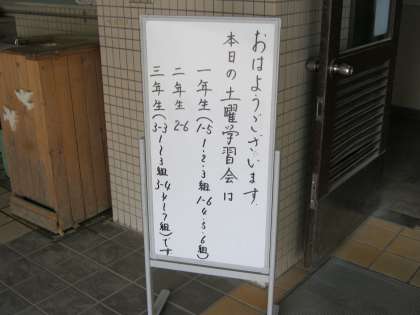 おはようございます.
本日の土曜学習会は
一年生(1-5 1・2・3組 1-6 1・4・5・6組)
二年生 2-6
三年生(3-3 1・2・3組 3-4 4・1・7組)です